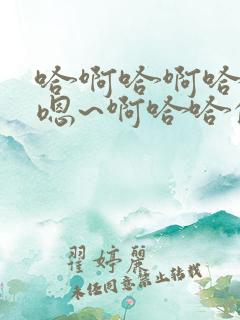 哈啊哈啊哈
嗯~啊哈哈
瞿婷麗
未经同意禁止转载